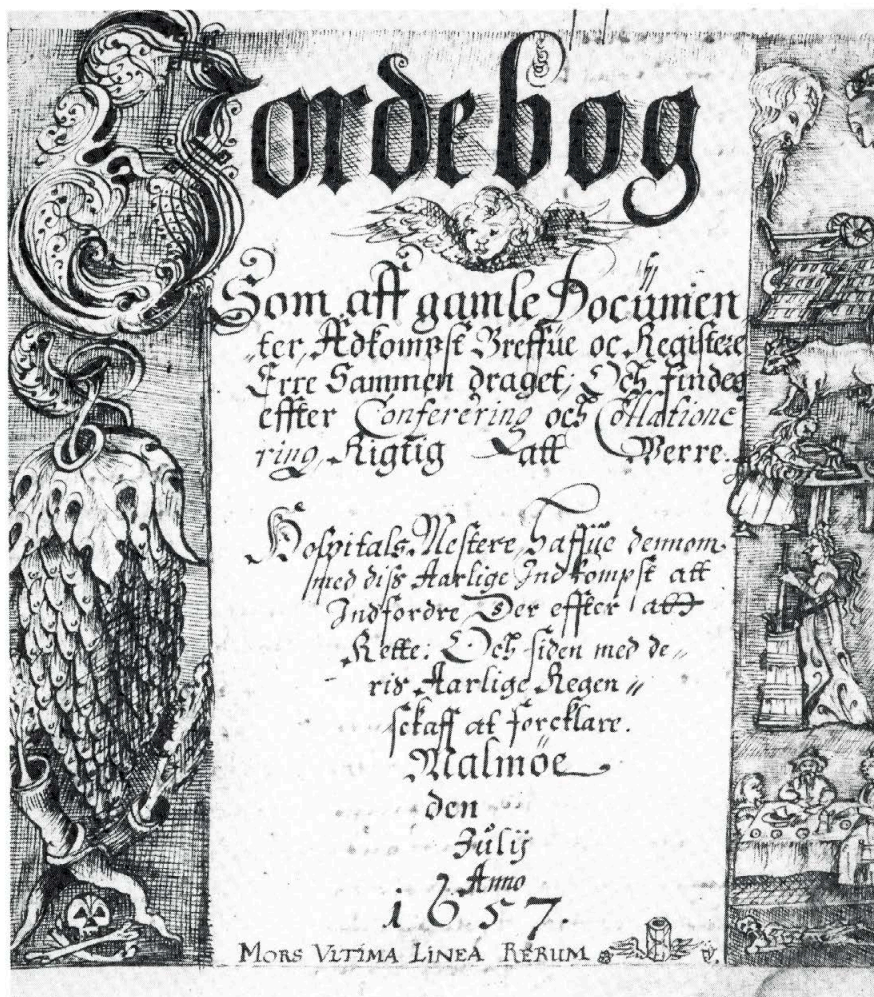 Jordebog
Som aff gamle Documen
ter, Adkompst Breffue oc Registere
Erre Sammen draget; Och findes
effter Conferering och Collatione
ring, Rigtig att Werre.
Hospitals Mestere, Haffue dennom
med diss Aarlige Indkompst att
Indfordre Der effter att
Rette: Och siden med de„
ris Aarlige Regen„
sckaff at forcklare.
Malmöe
den
Julij
Anno
1657.
MORS VLTIMA LINEA RERUM